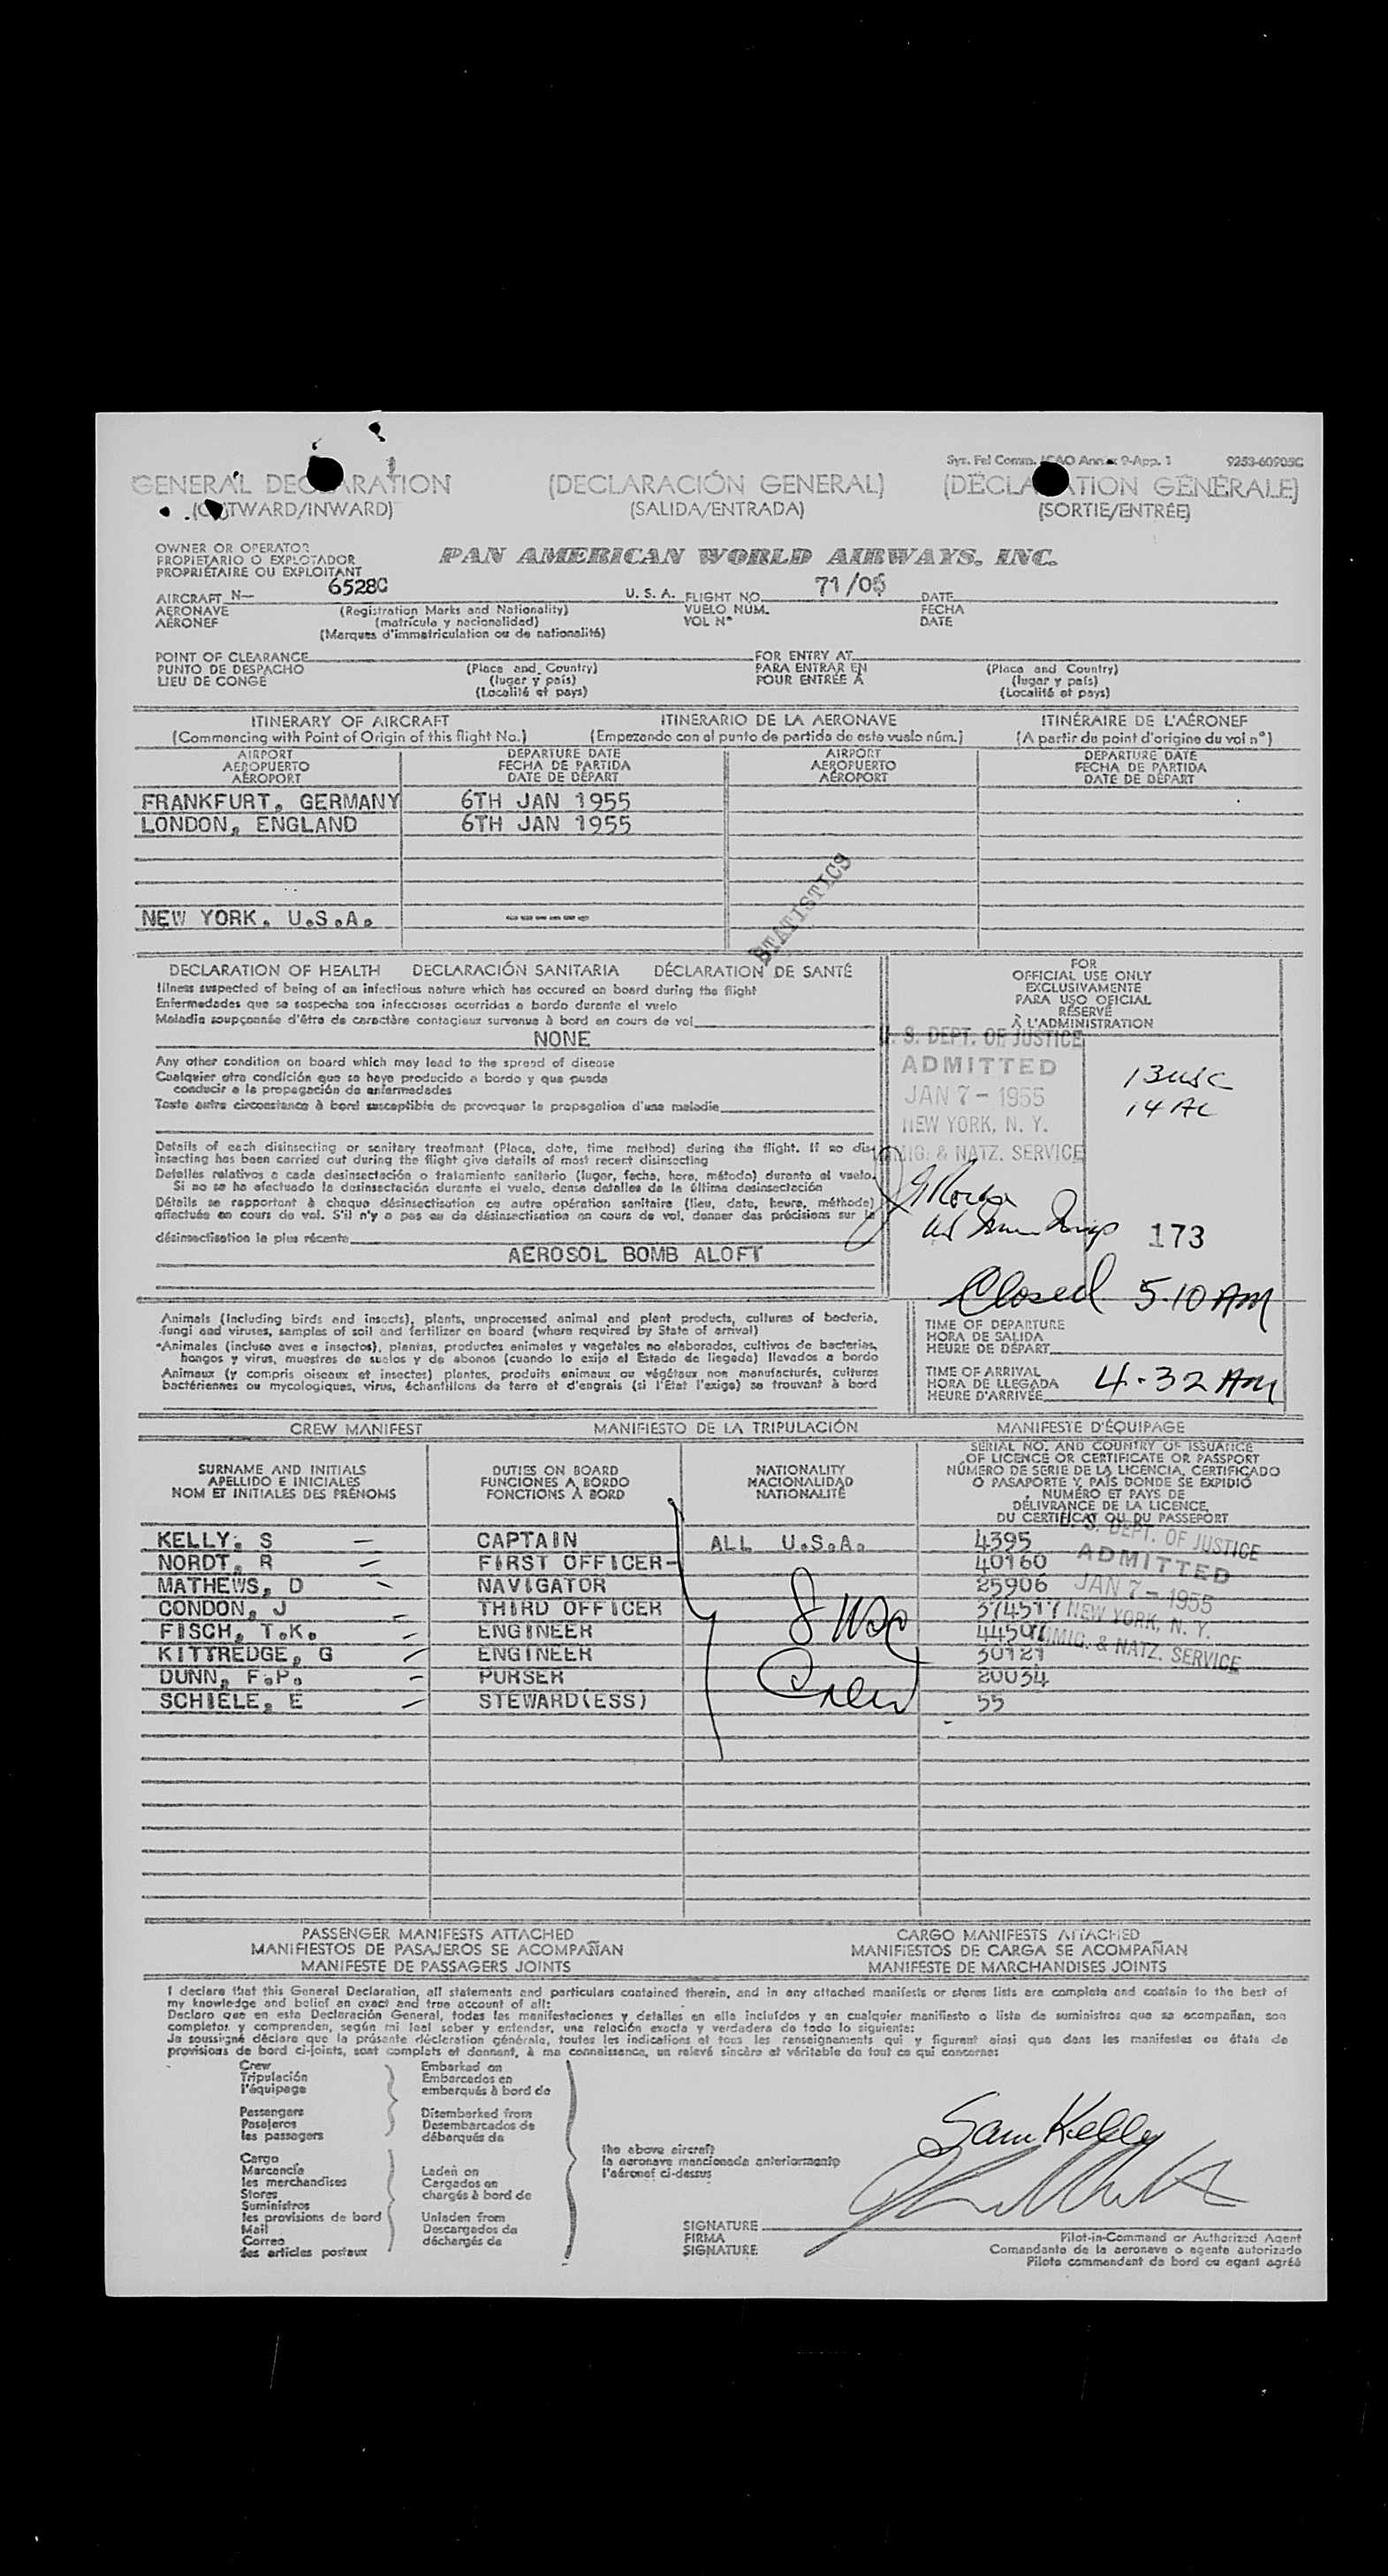 Sys. Fel Comm. ICAO Annex 9-App. 1 9253-60905C
GENERAL DECLARATION (DECLARACIÓN GENERAL) (DÉCLARATION GÉNÉRALE)
(OUTWARD/INWARD) (SALIDA/ENTRADA) (SORTIE/ENTRÉE)
OWNER OR OPERATOR
PROPIETARIO O EXPLOTADOR
PROPRIÉTAIRE OU EXPLOITANT
PAN AMERICAN WORLD AIRWAYS, INC.
AIRCRAFT N— 6528C U. S. A. FLIGHT NO. 71/05 DATE
AERONAVE (Registration Marks and Nationality) VUELO NUM. FECHA
AÉRONEF (matrícula y nacionalidad) VOL Nº DATE
(Marques d'immatriculation ou de nationalité)
POINT OF CLEARANCE FOR ENTRY AT
PUNTO DE DESPACHO (Place and Country) PARA ENTRAR EN (Place and Country)
LIEU DE CONGÉ (lugar y país) POUR ENTRÉE À (lugar y país)
(Localité et pays) (Localité et pays)
ITINERARY OF AIRCRAFT ITINERARIO DE LA AERONAVE ITINÉRAIRE DE L'AÉRONEF
(Commencing with Point of Origin of this flight No.) (Empezando con el punto de partida de este vuelo núm.) (A partir du point d'origine du vol nº)
AIRPORT DEPARTURE DATE AIRPORT DEPARTURE DATE
AEROPUERTO FECHA DE PARTIDA AEROPUERTO FECHA DE PARTIDA
AÉROPORT DATE DE DÉPART AÉROPORT DATE DE DÉPART
FRANKFURT, GERMANY 6TH JAN 1955
LONDON, ENGLAND 6TH JAN 1955
NEW YORK, U.S.A. ------
STATISTICS
DECLARATION OF HEALTH DECLARACIÓN SANITARIA DÉCLARATION DE SANTÉ
Illness suspected of being of an infectious nature which has occured on board during the flight
Enfermedades que se sospecha son infecciosas ocurridas a bordo durante el vuelo
Maladie soupçonnée d'être de caractère contagieux survenue à bord en cours de vol
NONE
Any other condition on board which may lead to the spread of disease
Cualquier otra condición que se haya producido a bordo y que pueda
conducir a la propagación de enfermedades
Toute autre circonstance à bord susceptible de provoquer la propagation d'une maladie
Details of each disinsecting or sanitary treatment (Place, date, time method) during the flight. If no dis-
insecting has been carried out during the flight give details of most recent disinsecting
Detalles relativos a cada desinsectación o tratamiento sanitario (lugar, fecha, hora, método) durante el vuelo.
Si no se ha efectuado la desinsectación durante el vuelo, dense detalles de la última desinsectación
Détails se rapportant à chaque désinsectisation ou autre opération sanitaire (lieu, date, heure, méthode)
effectuée en cours de vol. S'il n'y a pas eu de désinsectisation en cours de vol, donner des précisions sur la
désinsectisation la plus récente
AEROSOL BOMB ALOFT
FOR
OFFICIAL USE ONLY
EXCLUSIVAMENTE
PARA USO OFICIAL
RÉSERVÉ
À L'ADMINISTRATION
U. S. DEPT. OF JUSTICE
ADMITTED
JAN 7 - 1955
NEW YORK, N. Y.
IMMIG. & NATZ. SERVICE
13 USC
14 AL
173
Closed 5-10 AM
Animals (including birds and insects), plants, unprocessed animal and plant products, cultures of bacteria,
fungi and viruses, samples of soil and fertilizer on board (where required by State of arrival)
Animales (incluso aves e insectos), plantas, productos animales y vegetales no elaborados, cultivos de bacterias,
hongos y virus, muestras de suelos y de abonos (cuando lo exija el Estado de llegada) llevados a bordo
Animaux (y compris oiseaux et insectes) plantes, produits animaux ou végétaux non manufacturés, cultures
bactériennes ou mycologiques, virus, échantillons de terre et d'engrais (si l'Etat l'exige) se trouvant à bord
TIME OF DEPARTURE
HORA DE SALIDA
HEURE DE DÉPART
TIME OF ARRIVAL
HORA DE LLEGADA
HEURE D'ARRIVÉE
4-32 AM
CREW MANIFEST MANIFIESTO DE LA TRIPULACIÓN MANIFESTE D'ÉQUIPAGE
SURNAME AND INITIALS
APELLIDO E INICIALES
NOM ET INITIALES DES PRÉNOMS
DUTIES ON BOARD
FUNCIONES A BORDO
FONCTIONS À BORD
NATIONALITY
NACIONALIDAD
NATIONALITÉ
SERIAL NO. AND COUNTRY OF ISSUANCE
OF LICENCE OR CERTIFICATE OR PASSPORT
NÚMERO DE SERIE DE LA LICENCIA, CERTIFICADO
O PASAPORTE Y PAÍS DONDE SE EXPIDIÓ
NUMÉRO ET PAYS DE
DÉLIVRANCE DE LA LICENCE,
DU CERTIFICAT OU DU PASSEPORT
KELLY, S — CAPTAIN ALL U.S.A. 4395
NORDT, R — FIRST OFFICER 40160
MATHEWS, D — NAVIGATOR 25906
CONDON, J — THIRD OFFICER 374517
FISCH, T.K. — ENGINEER
KITTREDGE, G — ENGINEER 30121
DUNN, F.P. — PURSER 20034
SCHIELE, E — STEWARD(ESS) 55
8
Crew
U. S. DEPT. OF JUSTICE
ADMITTED
JAN 7 - 1955
NEW YORK, N. Y.
IMMIG. & NATZ. SERVICE
PASSENGER MANIFESTS ATTACHED CARGO MANIFESTS ATTACHED
MANIFIESTOS DE PASAJEROS SE ACOMPAÑAN MANIFIESTOS DE CARGA SE ACOMPAÑAN
MANIFESTE DE PASSAGERS JOINTS MANIFESTE DE MARCHANDISES JOINTS
I declare that this General Declaration, all statements and particulars contained therein, and in any attached manifests or stores lists are complete and contain to the best of
my knowledge and belief an exact and true account of all:
Declaro que en esta Declaración General, todas las manifestaciones y detalles en ella incluídos y en cualquier manifiesto o lista de suministros que se acompañan, son
completos y comprenden, según mi leal saber y entender, una relación exacta y verdadera de todo lo siguiente:
Je soussigné déclare que la présente déclaration générale, toutes les indications et tous les renseignements qui y figurent ainsi que dans les manifestes ou états de
provisions de bord ci-joints, sont complets et donnent, à ma connaissance, un relevé sincère et véritable de tout ce qui concerne:
Crew Embarked on
Tripulación Embarcados en
l'équipage embarqués à bord de
Passengers Disembarked from
Pasajeros Desembarcados de
les passagers débarqués de
the above aircraft
la aeronave mencionada anteriormente
l'aéronef ci-dessus
Cargo
Mercancía Laden on
les merchandises Cargados en
Stores chargés à bord de
Suministros
les provisions de bord Unladen from
Mail Descargados de
Correo déchargés de
les articles postaux
Sam Kelly
SIGNATURE
FIRMA
SIGNATURE
Pilot-in-Command or Authorized Agent
Comandante de la aeronave o agente autorizado
Pilote commandant de bord ou agent agréé